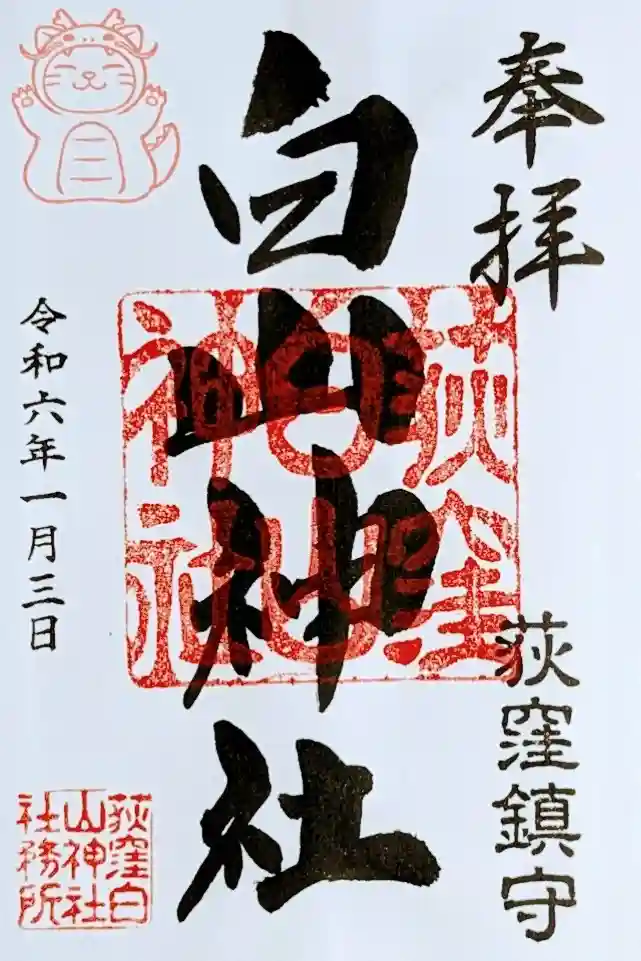 奉拝
荻窪鎮守
白山神社
荻窪
白山
神社
令和六年一月三日
荻窪白
山神社
社務所